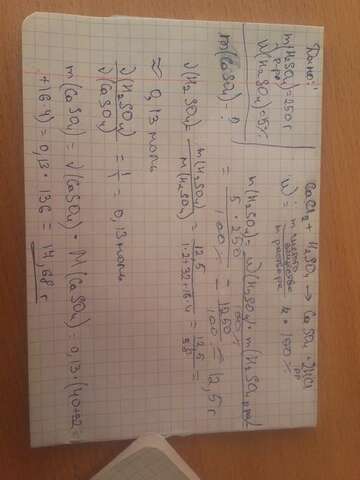 Дано:
m(H₂SO₄)р-ра=250г
W(H₂SO₄)=5%
m(CaSO₄)-?
CaCl₂ + H₂SO₄ → CaSO₄ + 2HCl
W = m чистого вещества / m раствора · 100%
m(H₂SO₄) = W(H₂SO₄) · m(H₂SO₄ р-ра) / 100%
= 5 · 250 / 100% = 1250 / 100 = 12,5 г
ν(H₂SO₄) = m(H₂SO₄) / M(H₂SO₄) = 12,5 / 1·2+32+16·4 = 12,5 / 98 =
≈ 0,13 моль
ν(H₂SO₄) / ν(CaSO₄) = 1 / 1 = 0,13 моль
m(CaSO₄) = ν(CaSO₄) · M(CaSO₄) = 0,13 · (40+32+
+16·4) = 0,13 · 136 = 17,68 г